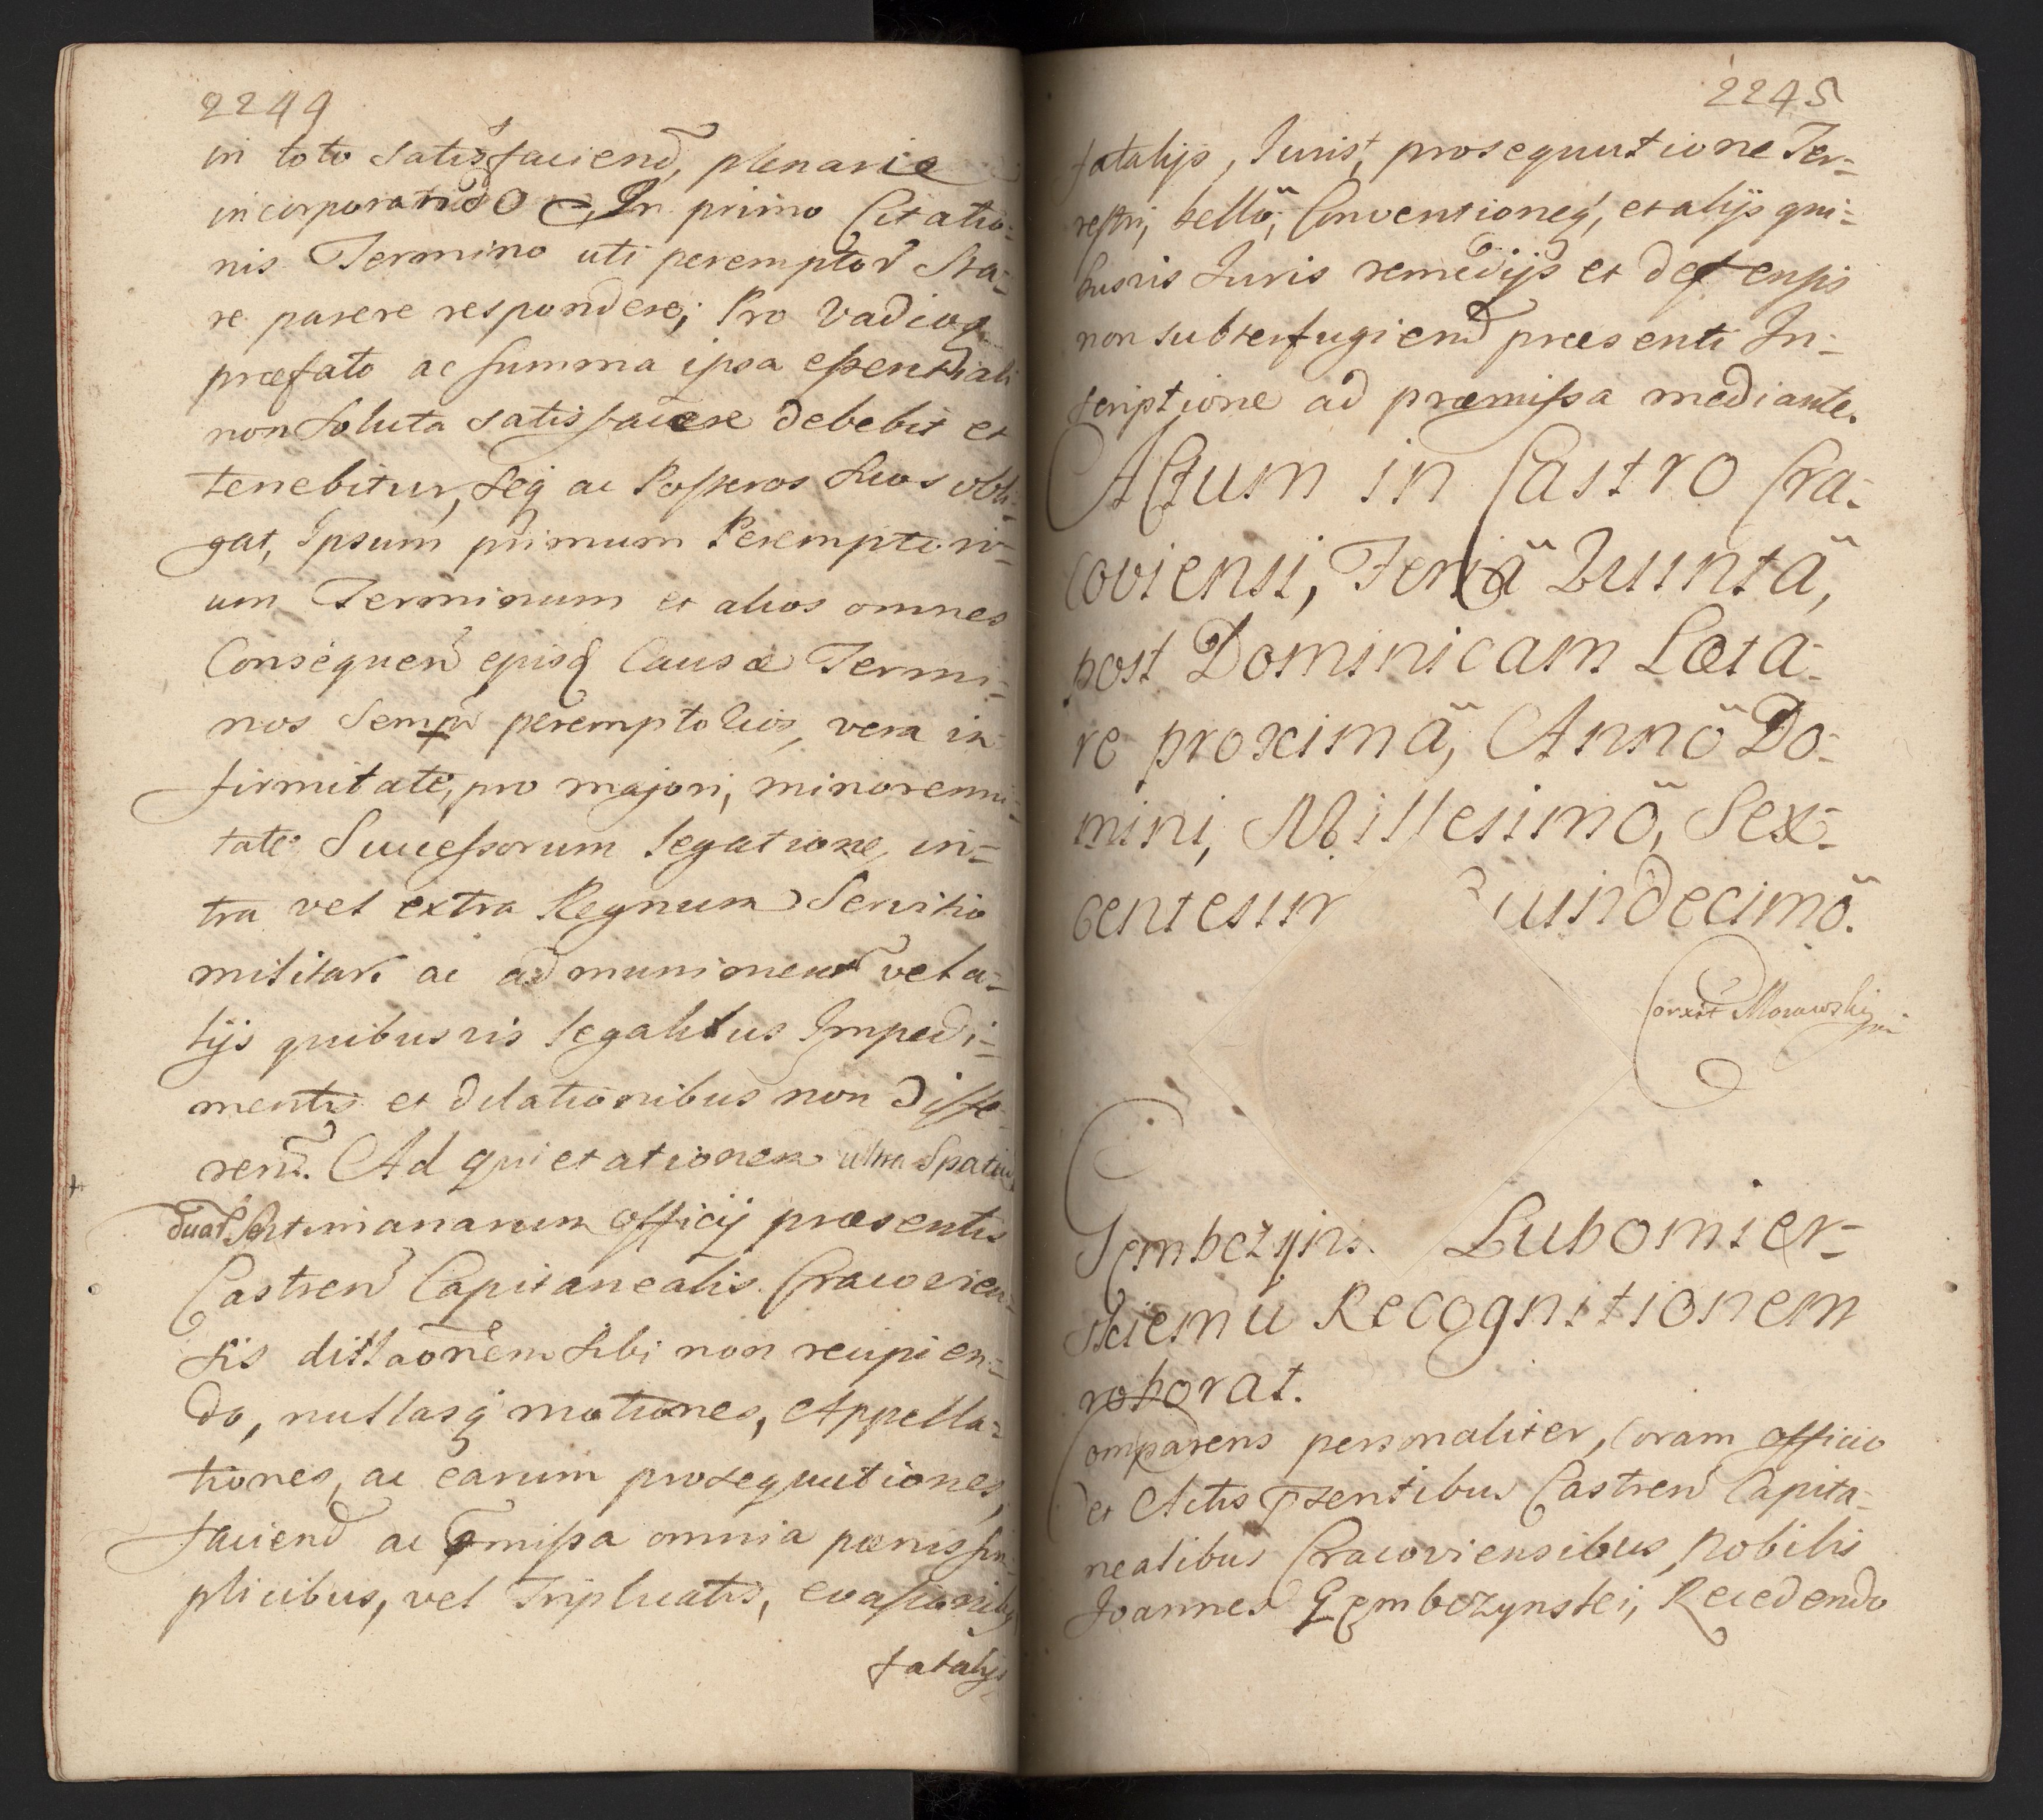 2244
in toto satisfaciend, plenarie
incorporando In primo Citatio=
nis Termino uti peremptor Sta=
re parere respondere; Pro Vadioq
præfato ac summa ipsa essentiali
non Soluta satisfacere debebit et
tenebitur, seq ac Posteros suos obli=
gat, Ipsum primum Peremptori=
um Terminum et alios omnes
Consequen ejusq Causæ Termi=
nos semp peremptorios, vera in
firmitate, pro majori, minorenni=
tate Successorum legatione, in=
tra vel extra Regnum Servitio
militari ac ad munimen vel a=
lijs quibusvis legalibus Impedi=
mentis et dilationibus non diffe=
rend. Ad quietationem ultra Spatiu
duar Septimanarum officij præsentis
Castren Capitanealis Cracovien=
sis dillaonem sibi non recipien=
do, nullasq motiones, Appella=
tiones, ac earum prosequutiones,
faciend ac pmissa omnia pœnis sim
plicibus, vel Triplicatis, evasionibq
fatalijs
2245
fatalijs, Jurist, prosequutione Ter=
restri, bellö, Conventioneq, et alijs qui=
busvis Juris remedijs et defensis
non subterfugiend præsenti In=
scriptione ad præmissa mediante.
Actum in Castro Cra=
coviensi, Feriä Quintä,
post Dominicam Læta=
re proximä, Annö Do=
mini, Millesimö, Sex=
centesim uindecimö.
Corxit Morawski mp
Gembczyns. Lubomier=
skiemu Recognitionem
roborat.
Comparens personaliter, Coram officio
et Actis psentibus Castren Capita=
nealibus Cracoviensibus, Nobilis
Joannes Gembczynski, Recedendo